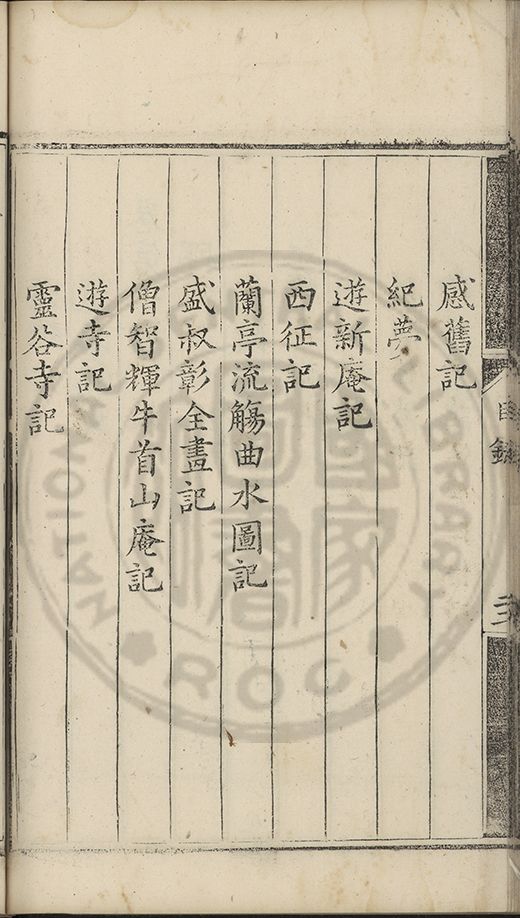 感舊記
紀夢
遊新庵記
西征記
蘭亭流觴曲水圖記
盛叔彰全畫記
僧智輝牛首山庵記
遊寺記
靈谷寺記
目錄
ROC